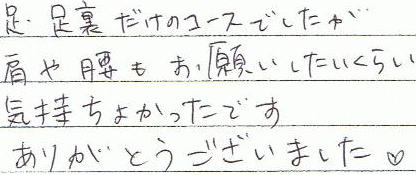 足・足裏だけのコースでしたが
肩や腰もお願いしたいくらい
気持ちよかったです
ありがとうございました♡